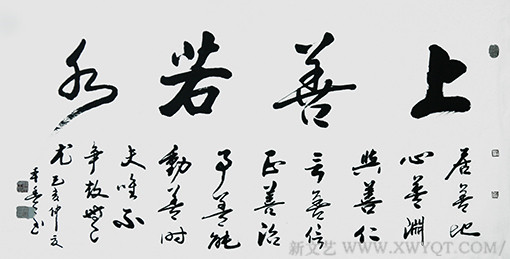 上善若水
居善地
心善淵
與善仁
言善信
正善治
事善能
動善時
夫唯不
爭故無
尤 己亥仲夏
新文艺 WWW.XWYQT.COM/